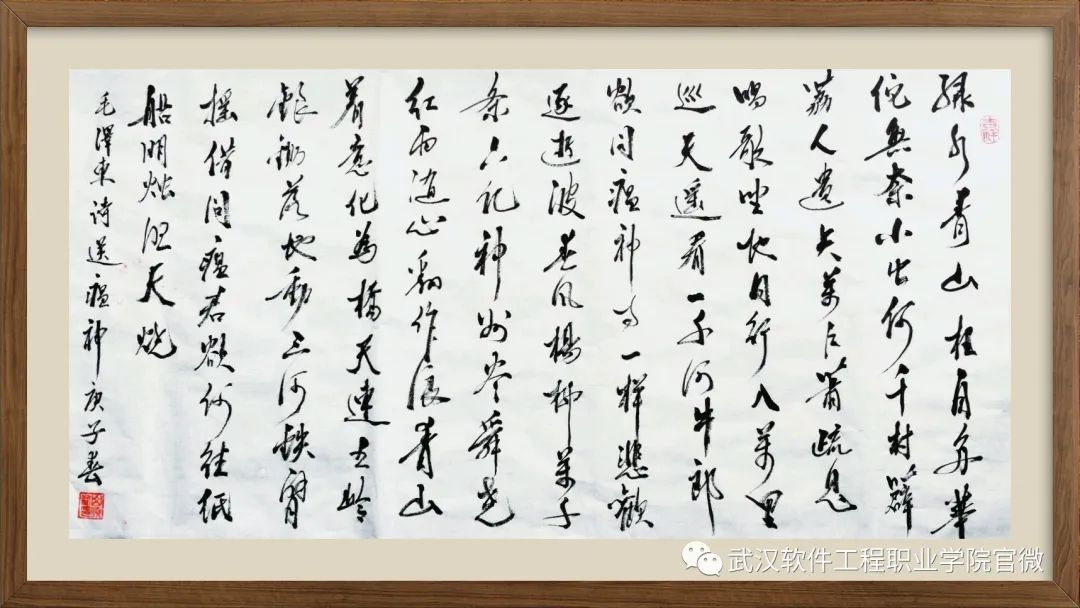 绿水青山枉自多華
佗無奈小虫何千村薜
荔人遗矢萬户萧疏鬼
唱歌坐地日行八萬里
巡天遥看一千河牛郎
欲问瘟神事一样悲歡
逐逝波春风楊柳萬千
条六亿神州尽舜尧
红雨随心翻作浪青山
着意化為橋天連五岭
银锄落地動三河铁臂
摇借问瘟君欲何往纸
船明烛照天烧
毛澤東诗送瘟神庚子春
武汉软件工程职业学院官微